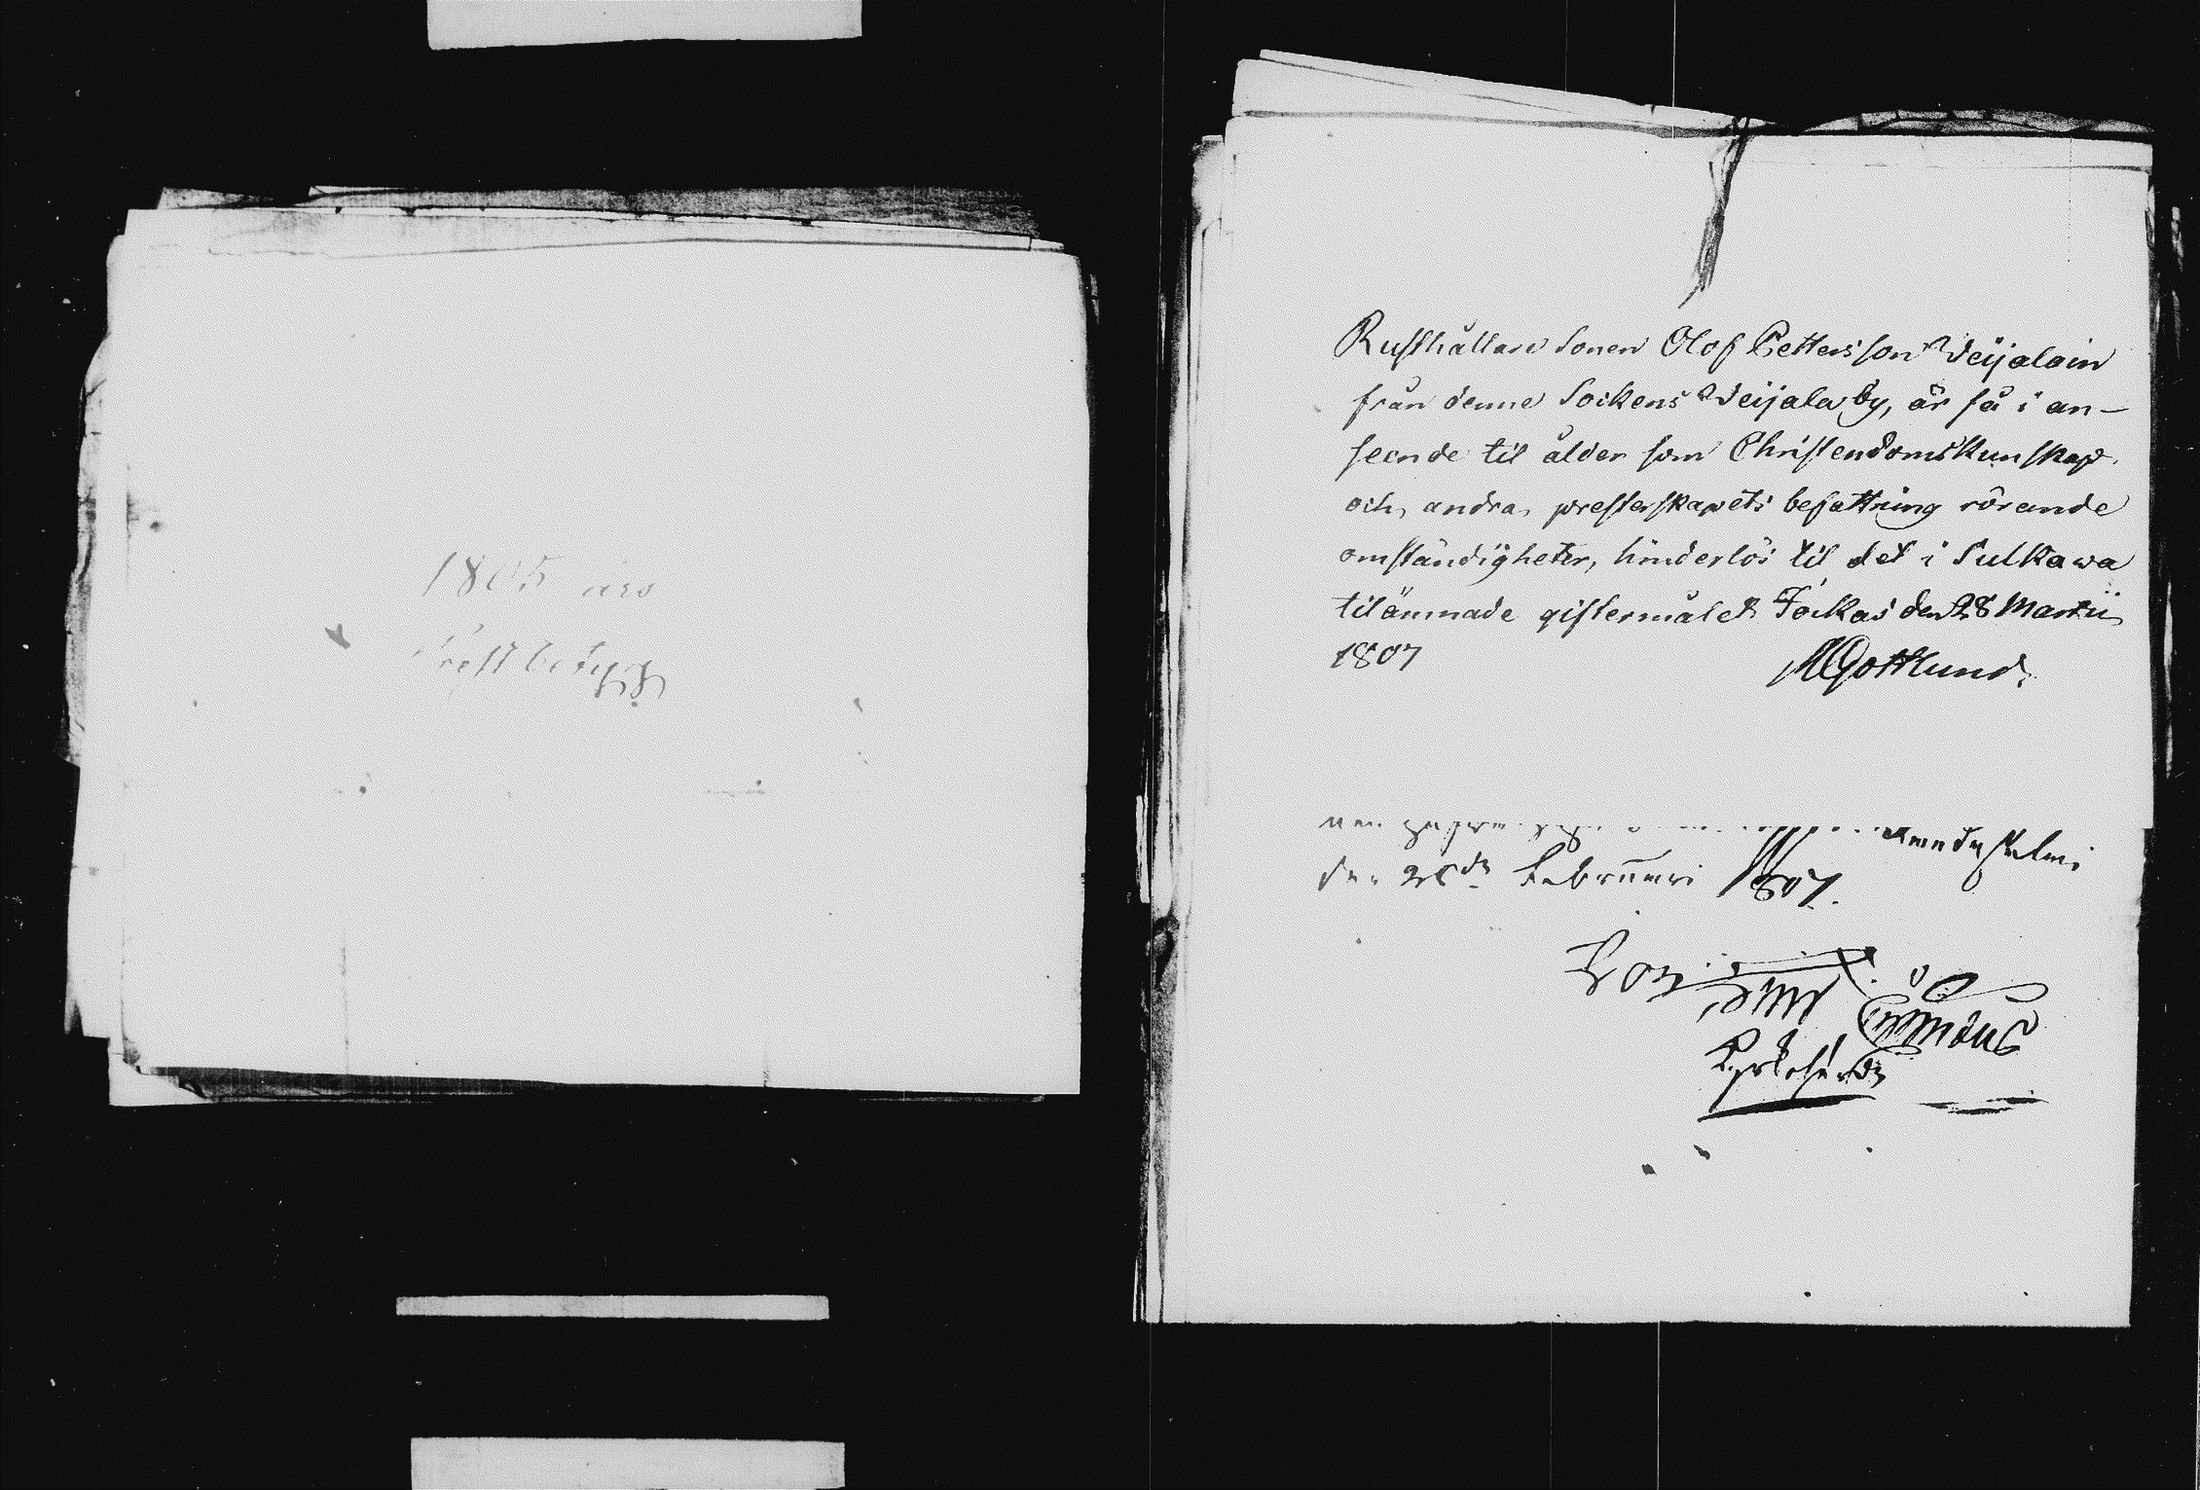 1805 års
Prestbetyg
Rusthållare Sonen Olof Pettersson Weijalain
från denne Sockens Weijala by, är så i an-
seende til ålder som Christendomskunskap
och andra presterskapets befattning rörande
omständigheter, hinderlös til det i Sulkawa
tilämnade giftermålet Jockas den 28 Martii
1807
MGottlund
den 26de Februari 1807.
Kyrkoherde